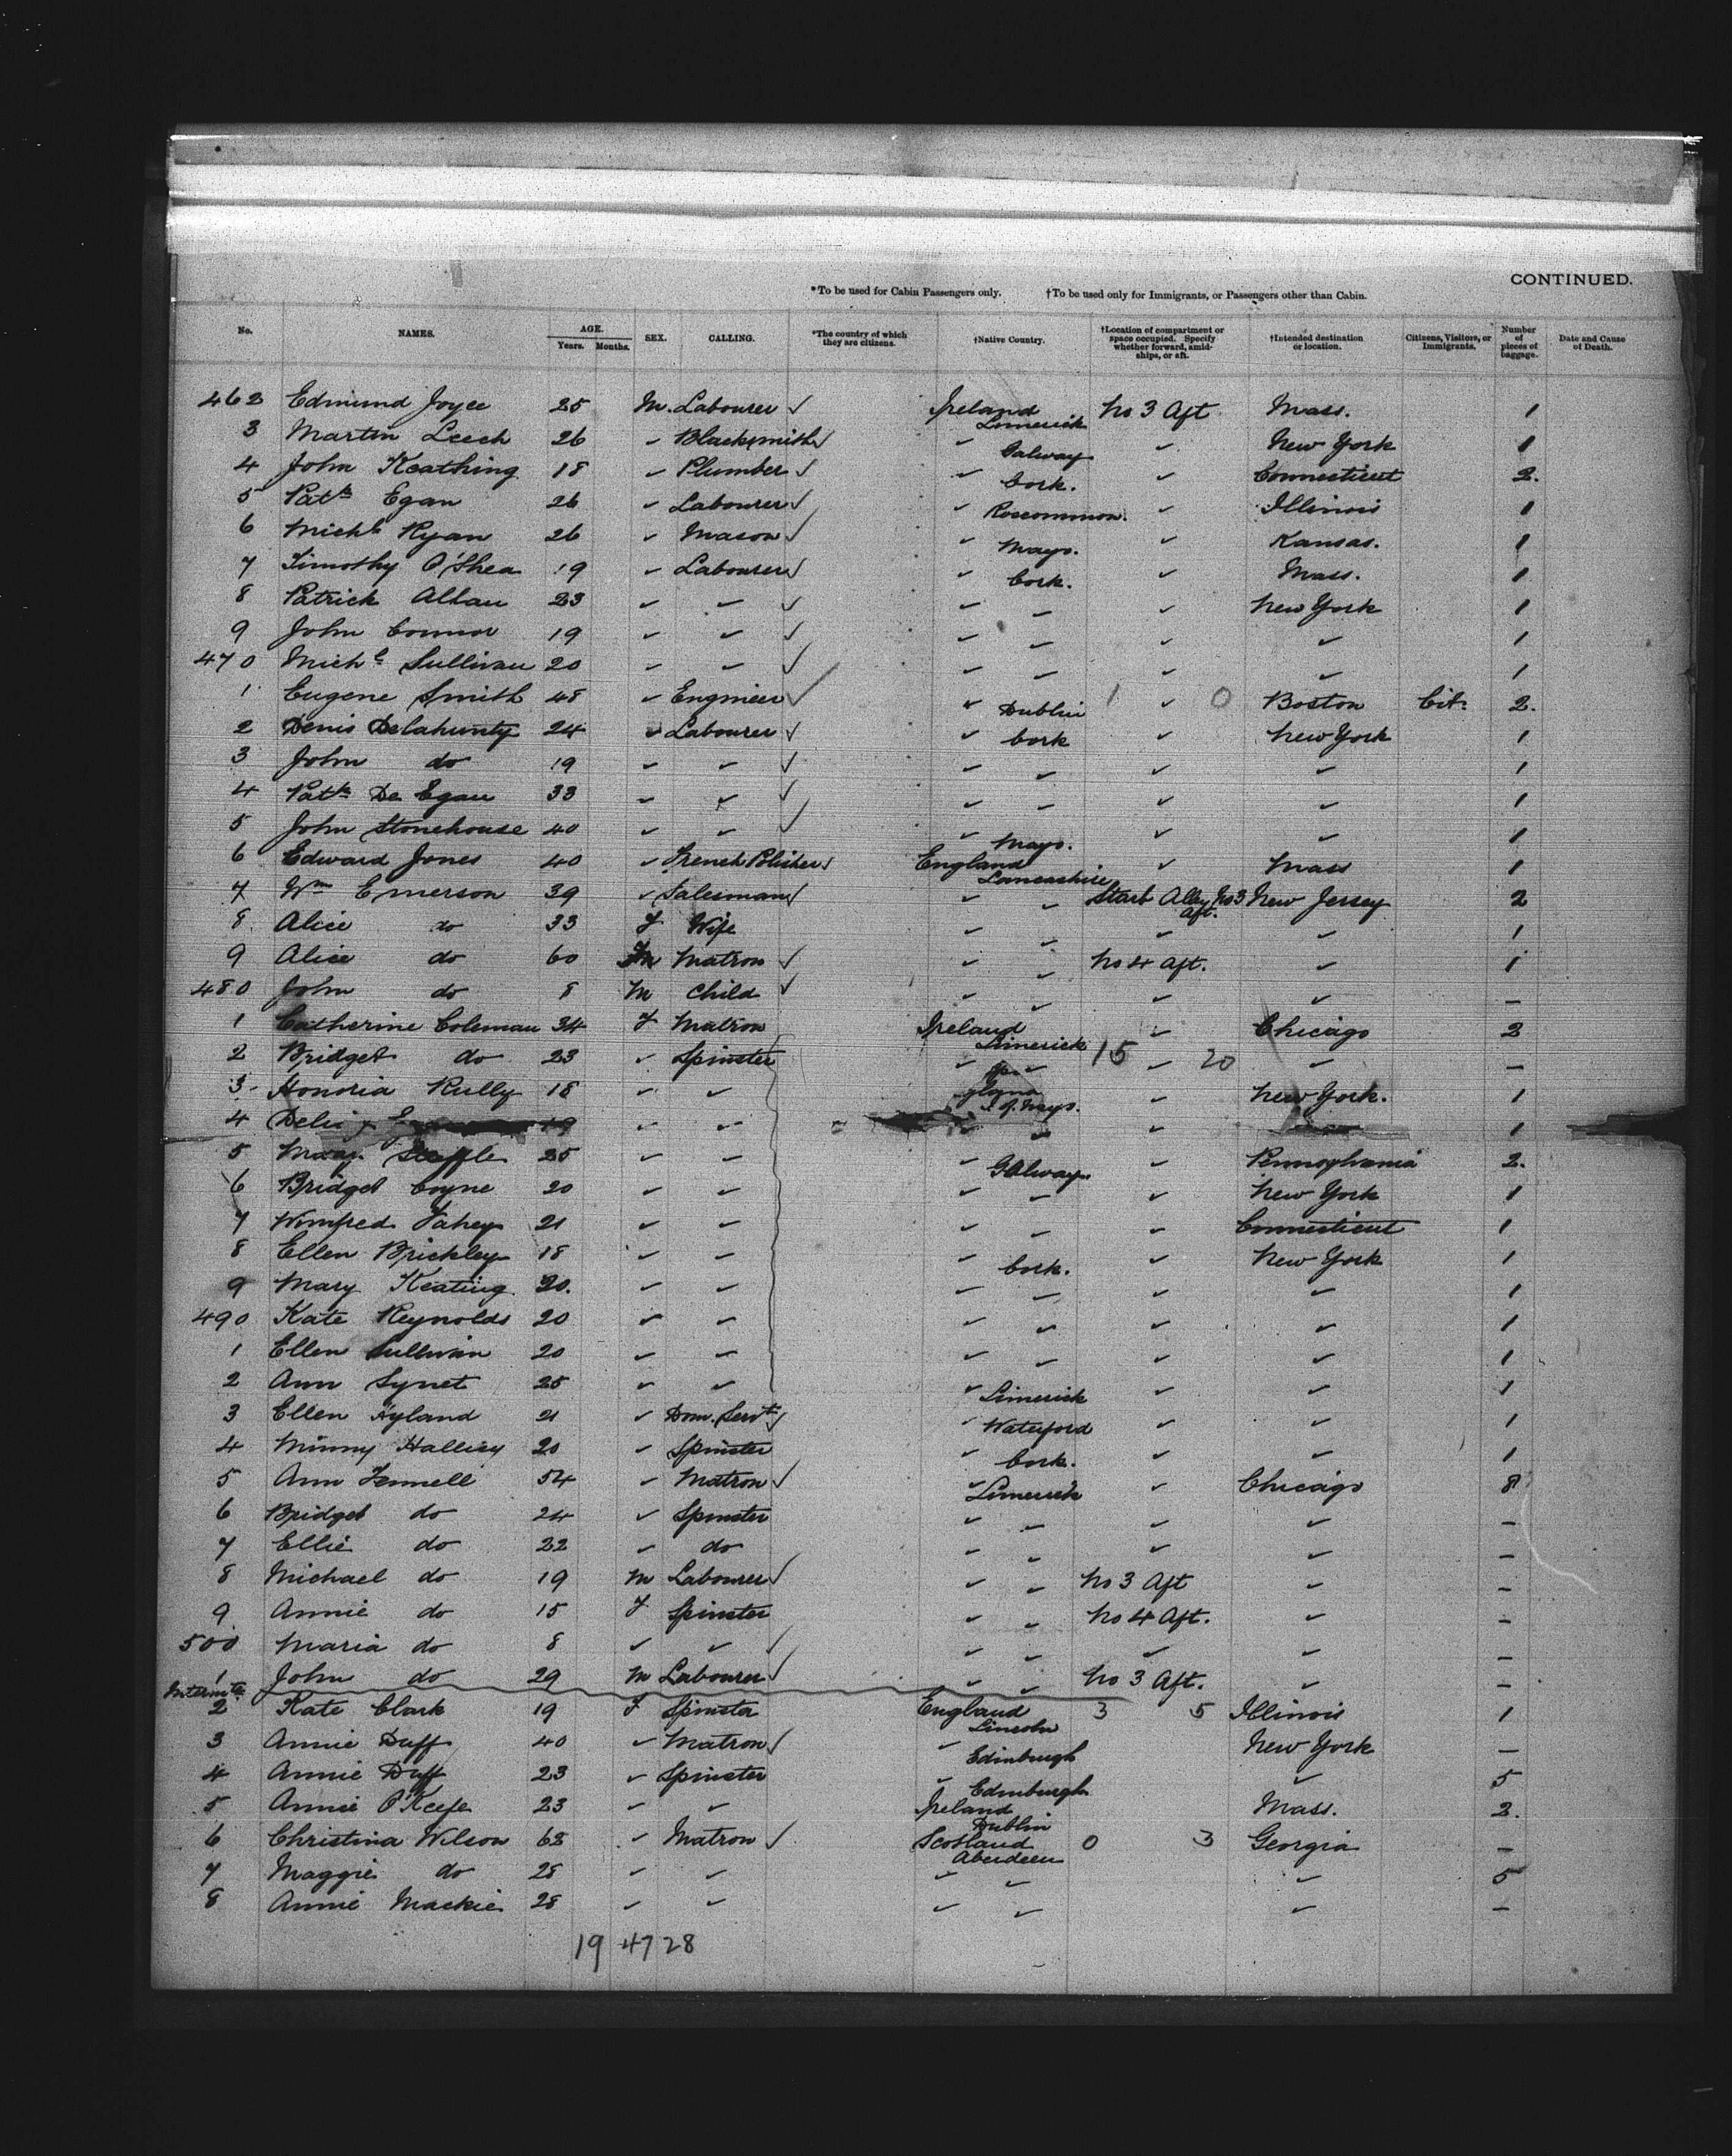 CONTINUED.
*To be used for Cabin Passengers only. †To be used only for Immigrants, or Passengers other than Cabin.
No. NAMES. AGE. Years. Months. SEX. CALLING. *The country of which they are citizens. †Native Country. †Location of compartment or space occupied. Specify whether forward, amidships, or aft. †Intended destination or location. Citizens, Visitors, or Immigrants. Number of pieces of baggage. Date and Cause of Death.
462 Edmund Joyce 25 M. Labourer ✓ Ireland Limerick No 3 Aft Mass. 1
3 Martin Leech 26 " Blacksmith ✓ " Galway " New York 1
4 John Keathing 18 " Plumber ✓ " Cork. " Connecticut 2.
5 Patk Egan 26 " Labourer ✓ " Roscommon. " Illinois 1
6 Michl Ryan 26 " Mason ✓ " Mayo. " Kansas. 1
7 Timothy O'Shea 19 " Labourer ✓ " Cork. " Mass. 1
8 Patrick 23 " " ✓ " " " New York 1
9 John Connor 19 " " ✓ " " " " 1
470 Michl Sullivan 20 " " ✓ " " " " 1
1 Eugene Smith 48 " Engineer ✓ " Dublin 1 " 0 Boston Cit: 2.
2 Denis Delahunty 24 " Labourer ✓ " Cork " New York 1
3 John do 19 " " ✓ " " " " 1
4 Patk De Egan 33 " " ✓ " " " " 1
5 John Stonehouse 40 " " ✓ " Mayo. " " 1
6 Edward Jones 40 " French Polisher ✓ England Lancashire " Mass 1
7 Wm Emerson 39 " Salesman ✓ " " Starb Alley No 3 Aft. New Jersey 2
8 Alice do 33 F Wife " " " " 1
9 Alice do 60 Matron ✓ " " No 4 Aft. " 1
480 John do 8 M Child ✓ " " " " –
1 Catherine Coleman 34 F Matron Ireland Limerick " Chicago 2
2 Bridget do 23 " Spinster " " 15 " 20 " –
3 Honoria Rully 18 " " Mayo. " New York. 1
4 19 " " " " " 1
5 Mary 25 " " " Galway. " Pennsylvania 2.
6 Bridget Coyne 20 " " " " " New York 1
7 Winfred Fahey 21 " " " " " Connecticut 1
8 Ellen Brickley 18 " " " Cork. " New York 1
9 Mary Keating 20. " " " " " " 1
490 Kate Reynolds 20 " " " " " " 1
1 Ellen Sullivan 20 " " " " " " 1
2 Ann Synet 25 " " " Limerick " " 1
3 Ellen Hyland 21 " Dom. Servt ✓ " Waterford " " 1
4 Minny Hallisy 20 " Spinster " Cork. " " 1
5 Ann Fennell 54 " Matron ✓ " Limerick " Chicago 8
6 Bridget do 24 " Spinster " " " " –
7 Ellie do 22 " do " " " " –
8 Michael do 19 M Labourer ✓ " " No 3 Aft " –
9 Annie do 15 F Spinster " " No 4 Aft. " –
500 Maria do 8 " " ✓ " " " " –
1 John do 29 M Labourer ✓ " " No 3 Aft. " –
Intermte
2 Kate Clark 19 F Spinster England Lincoln 3 5 Illinois 1
3 Annie Duff 40 " Matron ✓ " Edinburgh New York –
4 Annie Duff 23 " Spinster " Edinburgh " 5
5 Annie O'Keefe 23 " " Ireland Dublin Mass. 2.
6 Christina Wilson 62 " Matron ✓ Scotland Aberdeen 0 3 Georgia –
7 Maggie do 28 " " " " " 5
8 Annie Mackie 28 " " " " " –
19 47 28